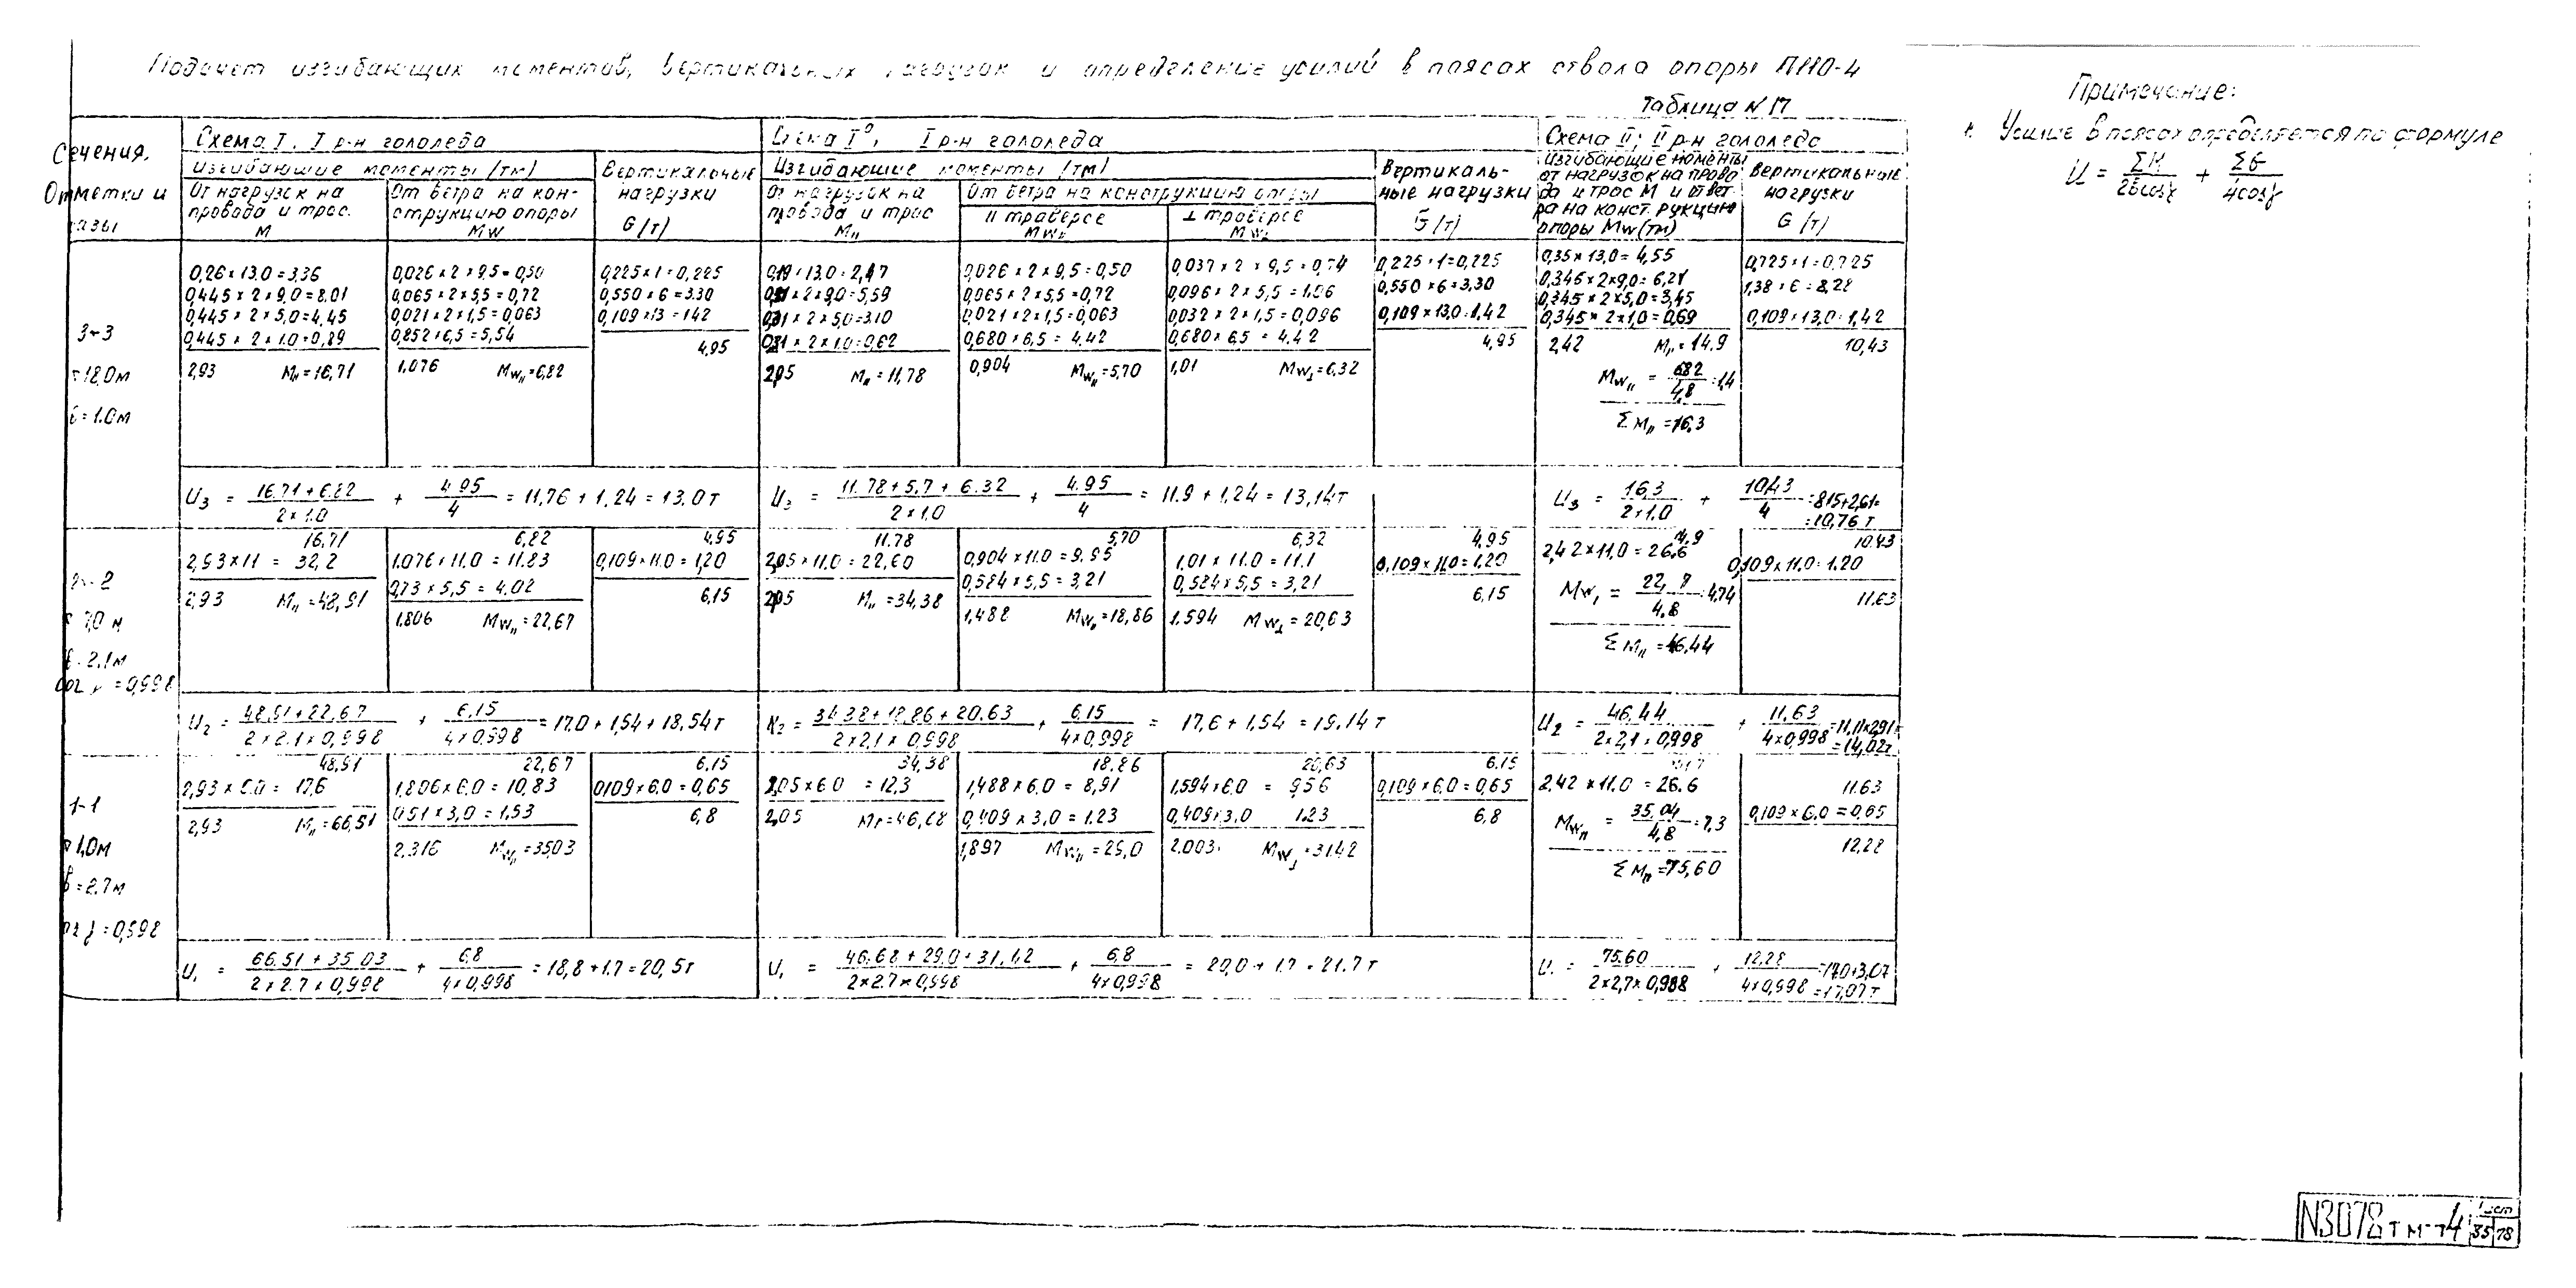 Подсчет изгибающих моментов, вертикальных нагрузок и определение усилий в поясах ствола опоры П110-4
Таблица N 17
Примечание:
Усилие в поясах определяется по формуле
U = ΣM / 2b cosγ + ΣG / 4cosγ
Сечения,
Отметки и
базы
Схема I, I р-н гололеда
Изгибающие моменты (тм)
От нагрузок на провода и трос. M
От ветра на конструкцию опоры MW
Вертикальные нагрузки G (т)
Схема Iª, I р-н гололеда
Изгибающие моменты (тм)
От нагрузок на провода и трос M„
От ветра на конструкцию опоры
II траверсе MW„
⊥ траверсе MW⊥
Вертикальные нагрузки G (т)
Схема II; II р-н гололеда
Изгибающие моменты от нагрузок на провода и трос M и от ветра на конструкцию опоры MW (тм)
Вертикальные нагрузки G (т)
3-3
18,0м
1.0м
0,26 × 13.0 = 3.36
0,445 × 2 × 9,0 = 8,01
0,445 × 2 × 5,0 = 4,45
0,445 × 2 × 1.0 = 0,89
2,93 M„ = 16,71
0,026 × 2 × 9,5 = 0,50
0,065 × 2 × 5,5 = 0,72
0,021 × 2 × 1,5 = 0,063
0,852 × 6,5 = 5,54
1.076 MW„ = 6,82
0,225 × 1 = 0,225
0,550 × 6 = 3.30
0,109 × 13 = 1.42
4,95
0,19 × 13.0 = 2,47
0,31 × 2 × 9,0 = 5,59
0,31 × 2 × 5.0 = 3.10
0,31 × 2 × 1.0 = 0,62
2,05 M„ = 11,78
0,026 × 2 × 9,5 = 0,50
0,065 × 2 × 5,5 = 0,72
0,021 × 2 × 1,5 = 0,063
0,680 × 6,5 = 4,42
0,904 MW„ = 5,70
0,037 × 2 × 9,5 = 0,74
0,096 × 2 × 5,5 = 1.06
0,032 × 2 × 1,5 = 0,096
0,680 × 6.5 = 4.42
1,01 MW⊥ = 6,32
0,225 × 1 = 0,225
0,550 × 6 = 3,30
0,109 × 13,0 = 1.42
4,95
0,35 × 13,0 = 4,55
0,345 × 2 × 9,0 = 6,21
0,345 × 2 × 5,0 = 3,45
0,345 × 2 × 1,0 = 0,69
2,42 M„ = 14.9
MW„ = 6,82 / 4,8 = 1,4
Σ M„ = 16.3
0,725 × 1 = 0,725
1,38 × 6 = 8,28
0,109 × 13,0 = 1,42
10,43
U₃ = 16.71 + 6.82 / 2 × 1.0 + 4.95 / 4 = 11,76 + 1,24 = 13,0 т
U₃ = 11.78 + 5,7 + 6.32 / 2 × 1,0 + 4.95 / 4 = 11.9 + 1,24 = 13,14т
U₃ = 16,3 / 2 × 1.0 + 10,43 / 4 = 8,15 + 2,61 = 10,76 т
2-2
7,0 м
2,1м
= 0,998
16,71
2,93 × 11 = 32,2
2,93 M„ = 48,91
6,82
1.076 × 11.0 = 11.83
0,73 × 5,5 = 4,02
1.806 MW„ = 22,67
4,95
0,109 × 11.0 = 1,20
6,15
11.78
2,05 × 11,0 = 22,60
2,05 M„ = 34,38
5,70
0,904 × 11.0 = 9.95
0,584 × 5,5 = 3,21
1,488 MW„ = 18,86
6,32
1,01 × 11.0 = 11.1
0,584 × 5,5 = 3,21
1.594 MW⊥ = 20,63
4,95
0,109 × 11,0 = 1.20
6,15
14.9
2,42 × 11,0 = 26.6
MW = 22,7 / 4.8 = 4,74
Σ M„ = 46,44
10.43
0,109 × 11,0 = 1.20
11,63
U₂ = 48,91 + 22,67 / 2 × 2.1 × 0,998 + 6,15 / 4 × 0,998 = 17,0 + 1,54 + 18,54 т
U₂ = 34.38 + 18,86 + 20.63 / 2 × 2,1 × 0,998 + 6,15 / 4 × 0,998 = 17,6 + 1,54 = 19.14 т
U₂ = 46.44 / 2 × 2,1 × 0,998 + 11.63 / 4 × 0,998 = 11,11 × 2,91 = 14,02т
1-1
1,0м
= 2,7м
= 0,998
48,91
2,93 × 6.0 = 17,6
2,93 M„ = 66,51
22,67
1.806 × 6.0 = 10,83
0,51 × 3,0 = 1,53
2.316 MW„ = 35,03
6.15
0,109 × 6.0 = 0,65
6,8
34,38
2,05 × 6.0 = 12,3
2,05 M„ = 46,68
18.86
1,488 × 6.0 = 8,91
0,409 × 3,0 = 1.23
1,897 MW„ = 29,0
20,63
1,594 × 6.0 = 9,56
0,409 × 3,0 1.23
2.003 MW⊥ = 31.42
6.15
0,109 × 6,0 = 0,65
6,8
2,42 × 11.0 = 26.6
MW„ = 35,04 / 4,8 = 7,3
Σ M„ = 75,60
11.63
0,109 × 6,0 = 0,65
12,28
U₁ = 66.51 + 35.03 / 2 × 2.7 × 0,998 + 6,8 / 4 × 0,998 = 18,8 + 1.7 = 20,5т
U₁ = 46.68 + 29,0 + 31,42 / 2 × 2.7 × 0,998 + 6,8 / 4 × 0,998 = 20,0 + 1.7 = 21.7 т
U = 75.60 / 2 × 2,7 × 0,988 + 12,28 / 4 × 0,998 = 17,0 + 3,07 = 17,07 т
N3078тм-т4
Лист
35 78